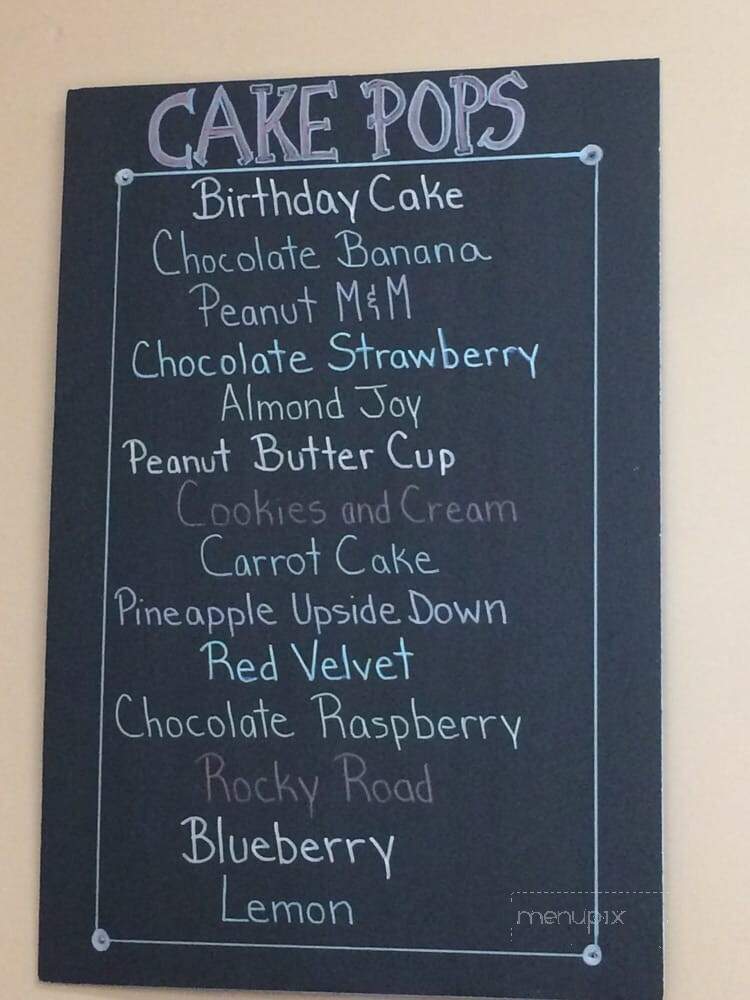 CAKE POPS
Birthday Cake
Chocolate Banana
Peanut M&M
Chocolate Strawberry
Almond Joy
Peanut Butter Cup
Cookies and Cream
Carrot Cake
Pineapple Upside Down
Red Velvet
Chocolate Raspberry
Rocky Road
Blueberry
Lemon
menupix